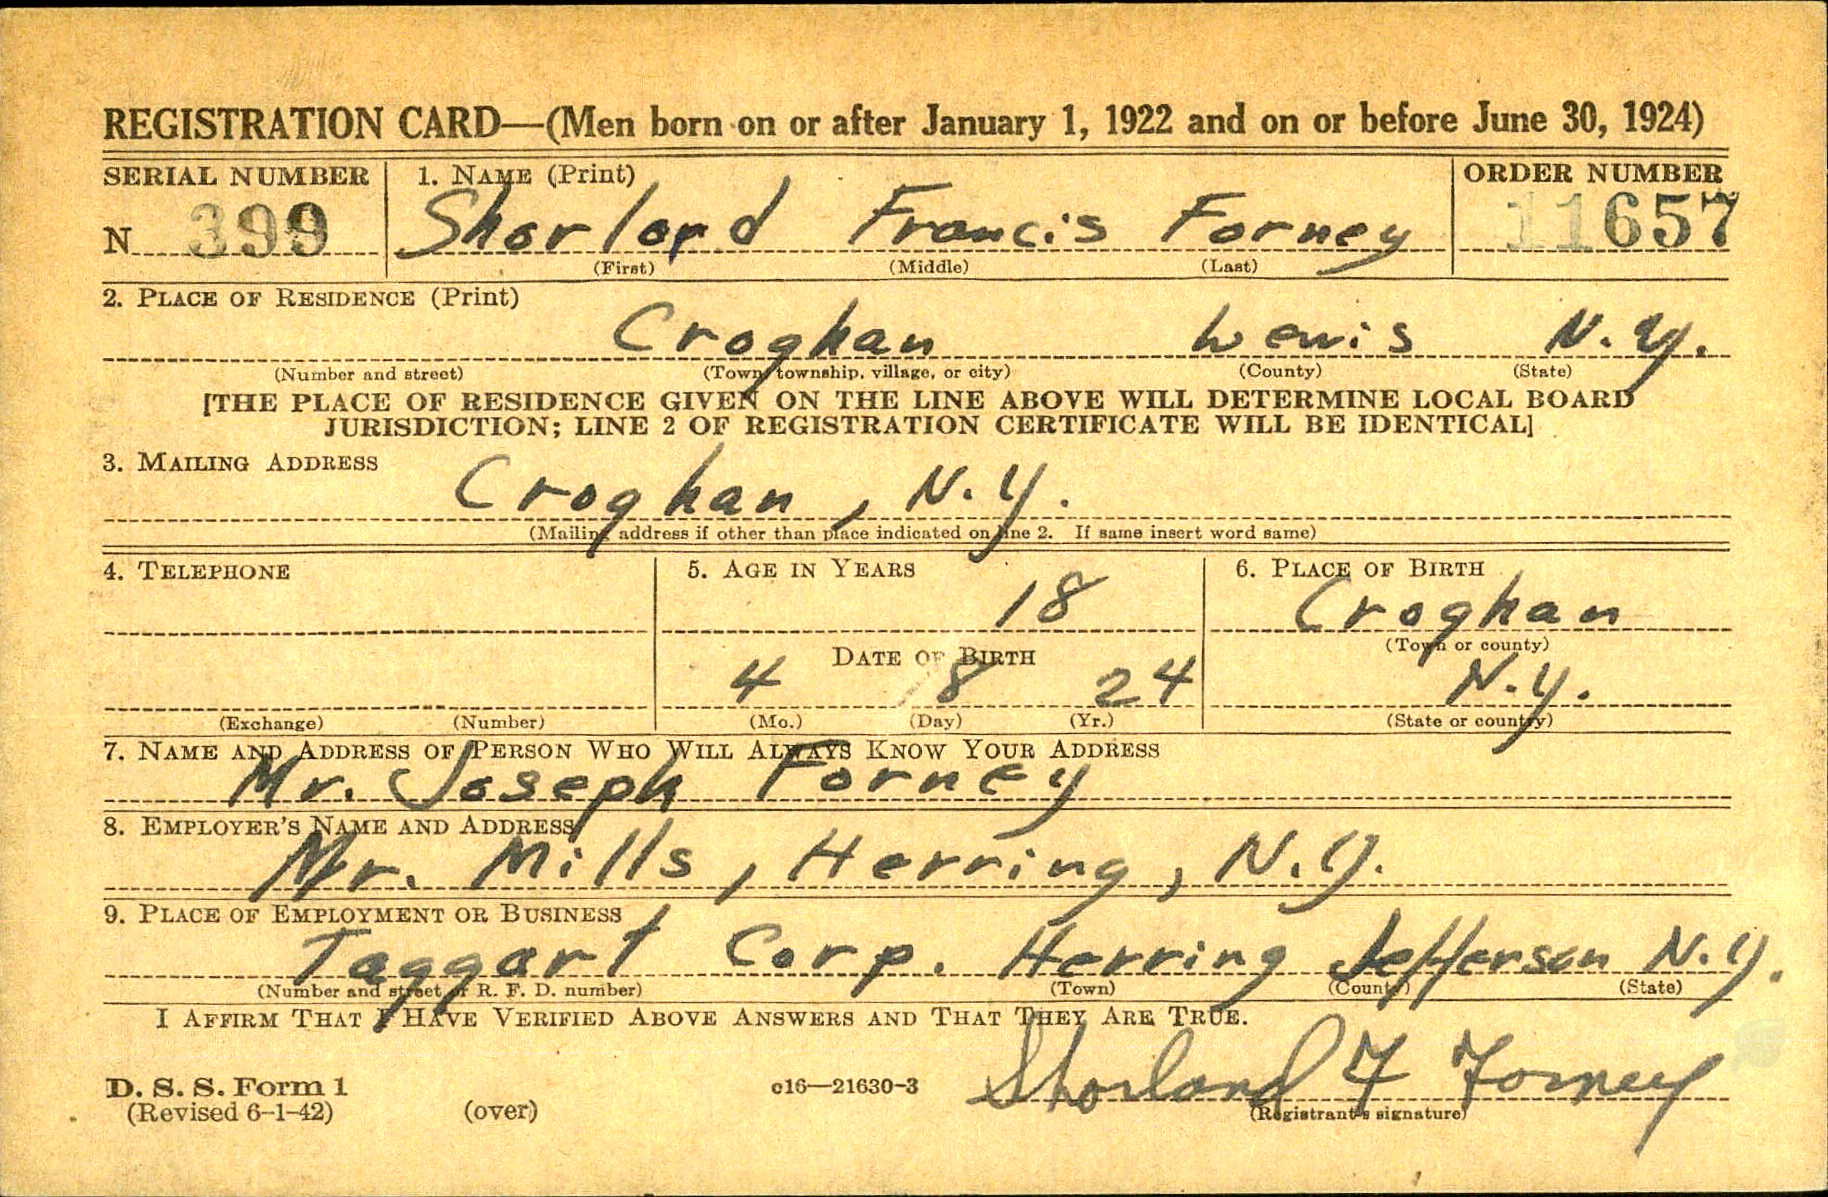 REGISTRATION CARD—(Men born on or after January 1, 1922 and on or before June 30, 1924)
SERIAL NUMBER 1. NAME (Print) ORDER NUMBER
N 399 Shorland Francis Forney 11657
(First) (Middle) (Last)
2. PLACE OF RESIDENCE (Print)
Croghan Lewis N.Y.
(Number and street) (Town, township, village, or city) (County) (State)
[THE PLACE OF RESIDENCE GIVEN ON THE LINE ABOVE WILL DETERMINE LOCAL BOARD
JURISDICTION; LINE 2 OF REGISTRATION CERTIFICATE WILL BE IDENTICAL]
3. MAILING ADDRESS
Croghan, N.Y.
(Mailing address if other than place indicated on line 2. If same insert word same)
4. TELEPHONE 5. AGE IN YEARS 6. PLACE OF BIRTH
18 Croghan
(Town or county)
DATE OF BIRTH
4 8 24 N.Y.
(Exchange) (Number) (Mo.) (Day) (Yr.) (State or country)
7. NAME AND ADDRESS OF PERSON WHO WILL ALWAYS KNOW YOUR ADDRESS
Mr. Joseph Forney
8. EMPLOYER'S NAME AND ADDRESS
Mr. Mills, Herring, N.Y.
9. PLACE OF EMPLOYMENT OR BUSINESS
Taggart Corp. Herring Jefferson N.Y.
(Number and street or R. F. D. number) (Town) (County) (State)
I AFFIRM THAT I HAVE VERIFIED ABOVE ANSWERS AND THAT THEY ARE TRUE.
Shorland F Forney
D. S. S. Form 1 c16—21630-3
(Revised 6-1-42) (over) (Registrant's signature)